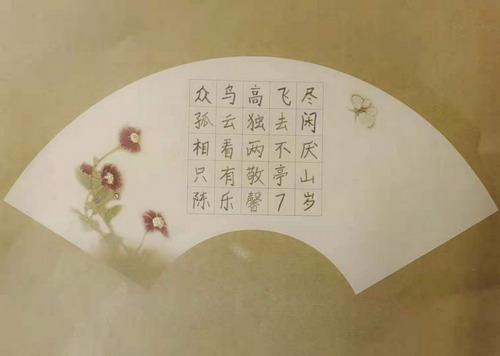 众鸟高飞尽
孤云独去闲
相看两不厌
只有敬亭山
陈乐馨7岁